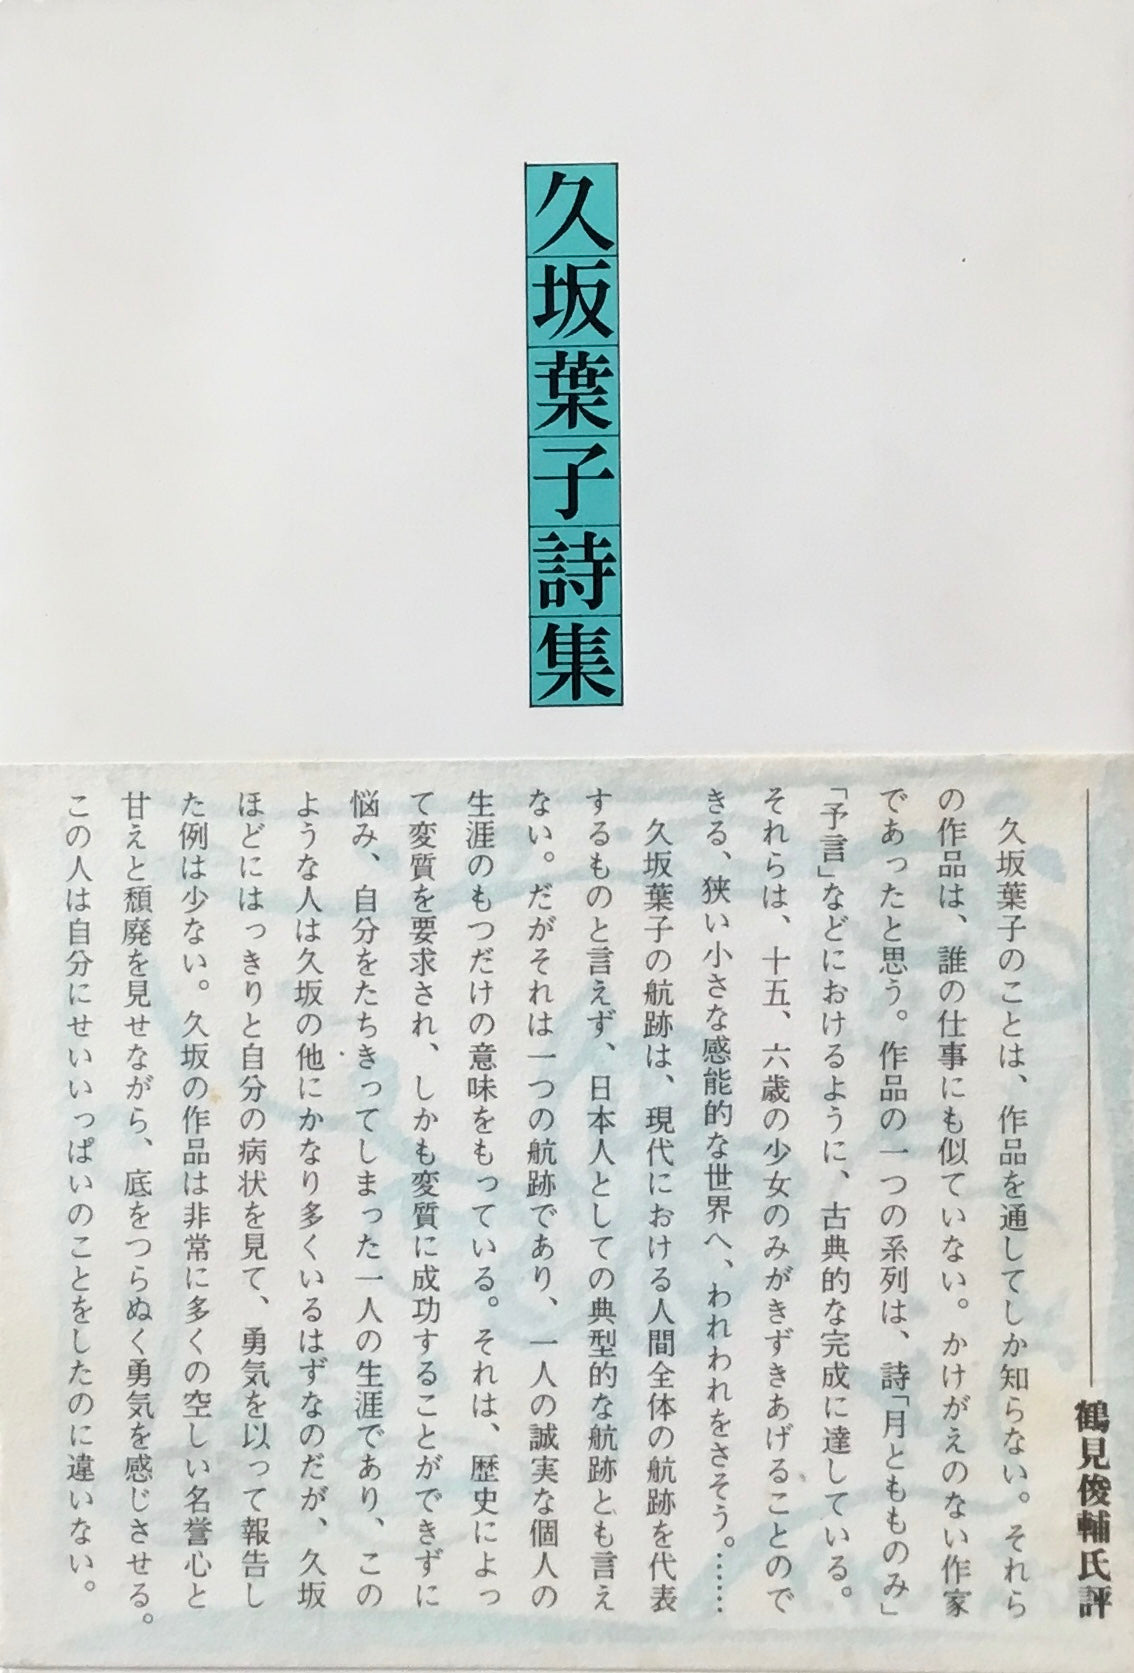 久坂葉子詩集
鶴見俊輔氏評
久坂葉子のことは、作品を通してしか知らない。それら
の作品は、誰の仕事にも似ていない。かけがえのない作家
であったと思う。作品の一つの系列は、詩「月とものみ」
「予言」などにおけるように、古典的な完成に達している。
それらは、十五、六歳の少女のみがきずきあげることので
きる、狭い小さな感能的な世界へ、われわれをさそう。……
久坂葉子の航跡は、現代における人間全体の航跡を代表
するものと言えず、日本人としての典型的な航跡とも言え
ない。だがそれは一つの航跡であり、一人の誠実な個人の
生涯のもつだけの意味をもっている。それは、歴史によっ
て変質を要求され、しかも変質に成功することができずに
悩み、自分をたちきってしまった一人の生涯であり、この
ような人は久坂の他にかなり多くいるはずなのだが、久坂
ほどにはっきりと自分の病状を見て、勇気を以って報告し
た例は少ない。久坂の作品は非常に多くの空しい名誉心と
甘えと頽廃を見せながら、底をつらぬく勇気を感じさせる。
この人は自分にせいいっぱいのことをしたのに違いない。